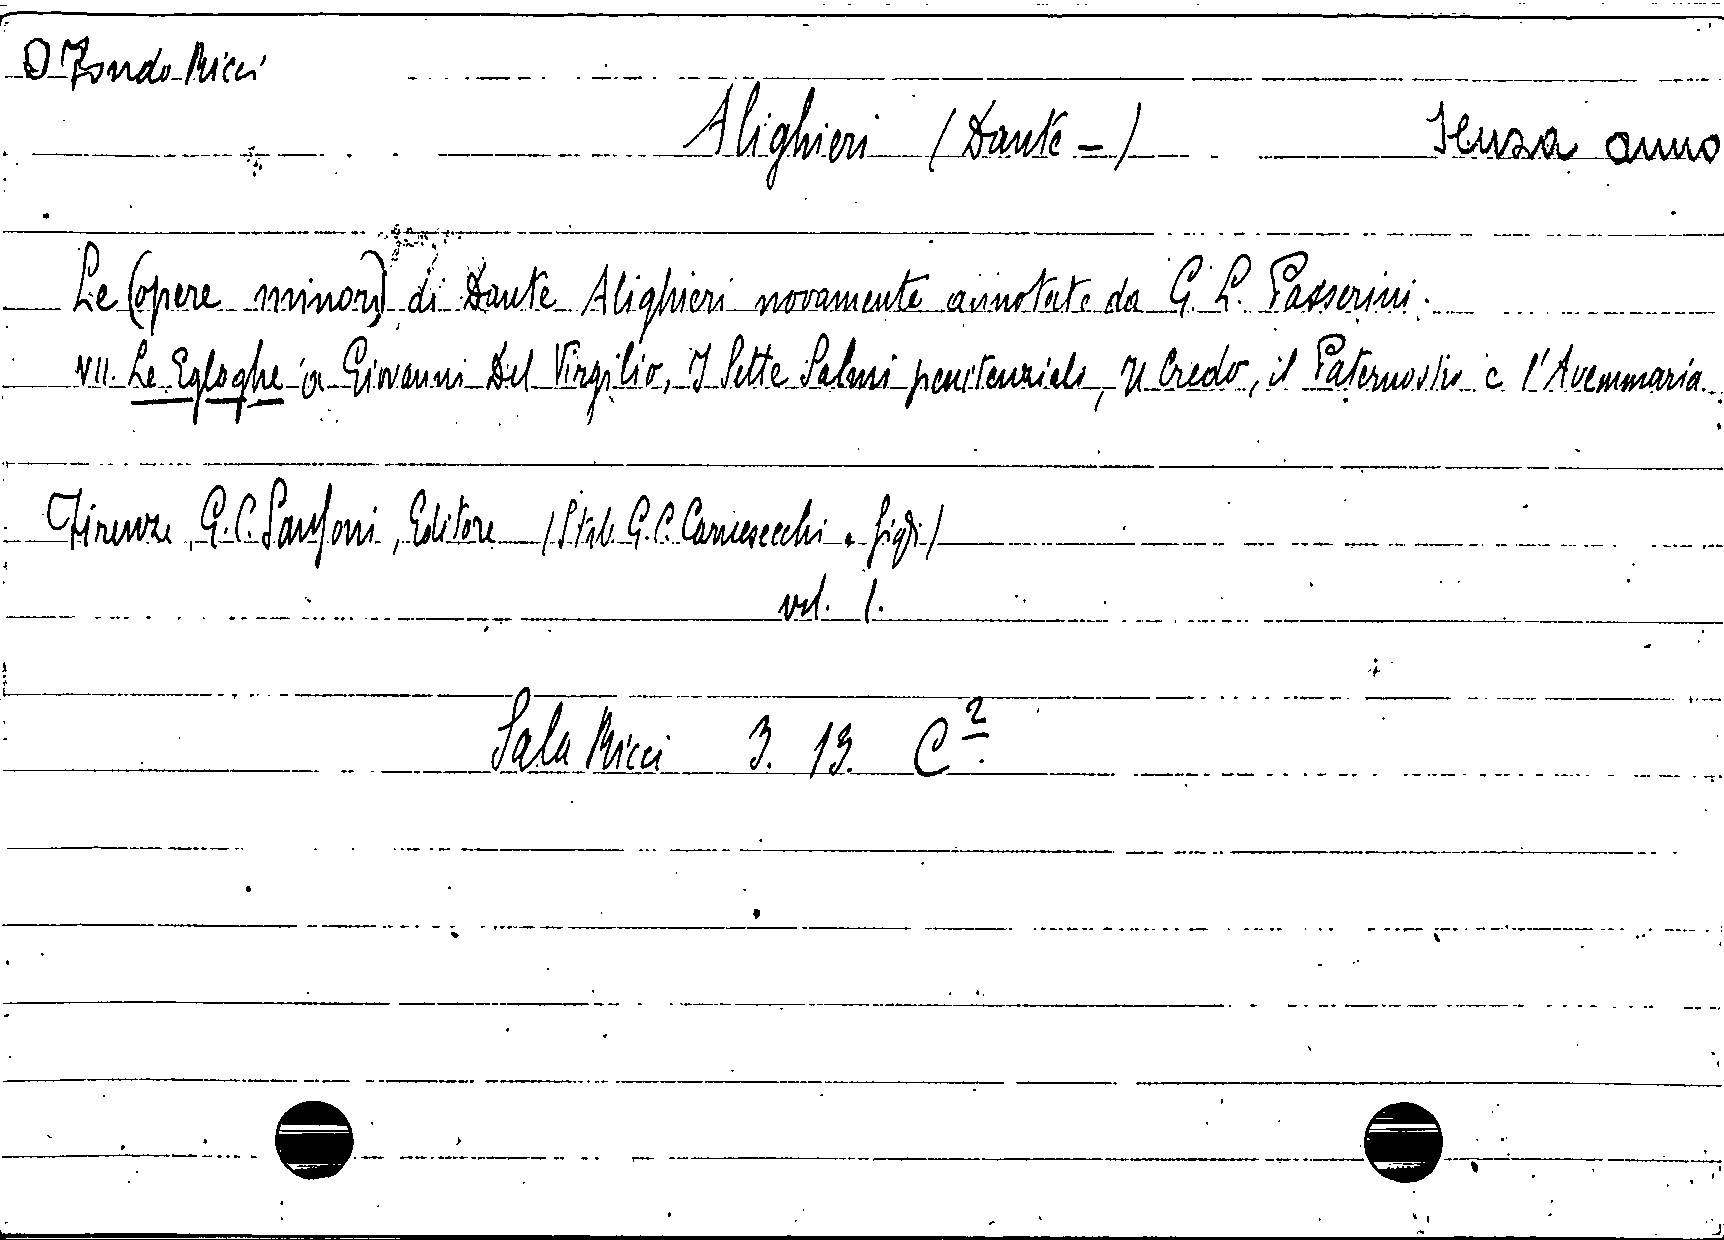 D Fondo Ricci
Alighieri (Dante -)
Senza anno
Le (opere minori) di Dante Alighieri novamente annotate da G. L. Passerini.
VII. Le Egloghe a Giovanni Del Virgilio, I Sette Salmi penitenziali, Il Credo, il Paternostro e l'Avemmaria
Firenze, G. C. Sansoni, Editore (Stab. G. C. Carnesecchi e figli)
vol. 1.
Sala Ricci 3. 13. C².